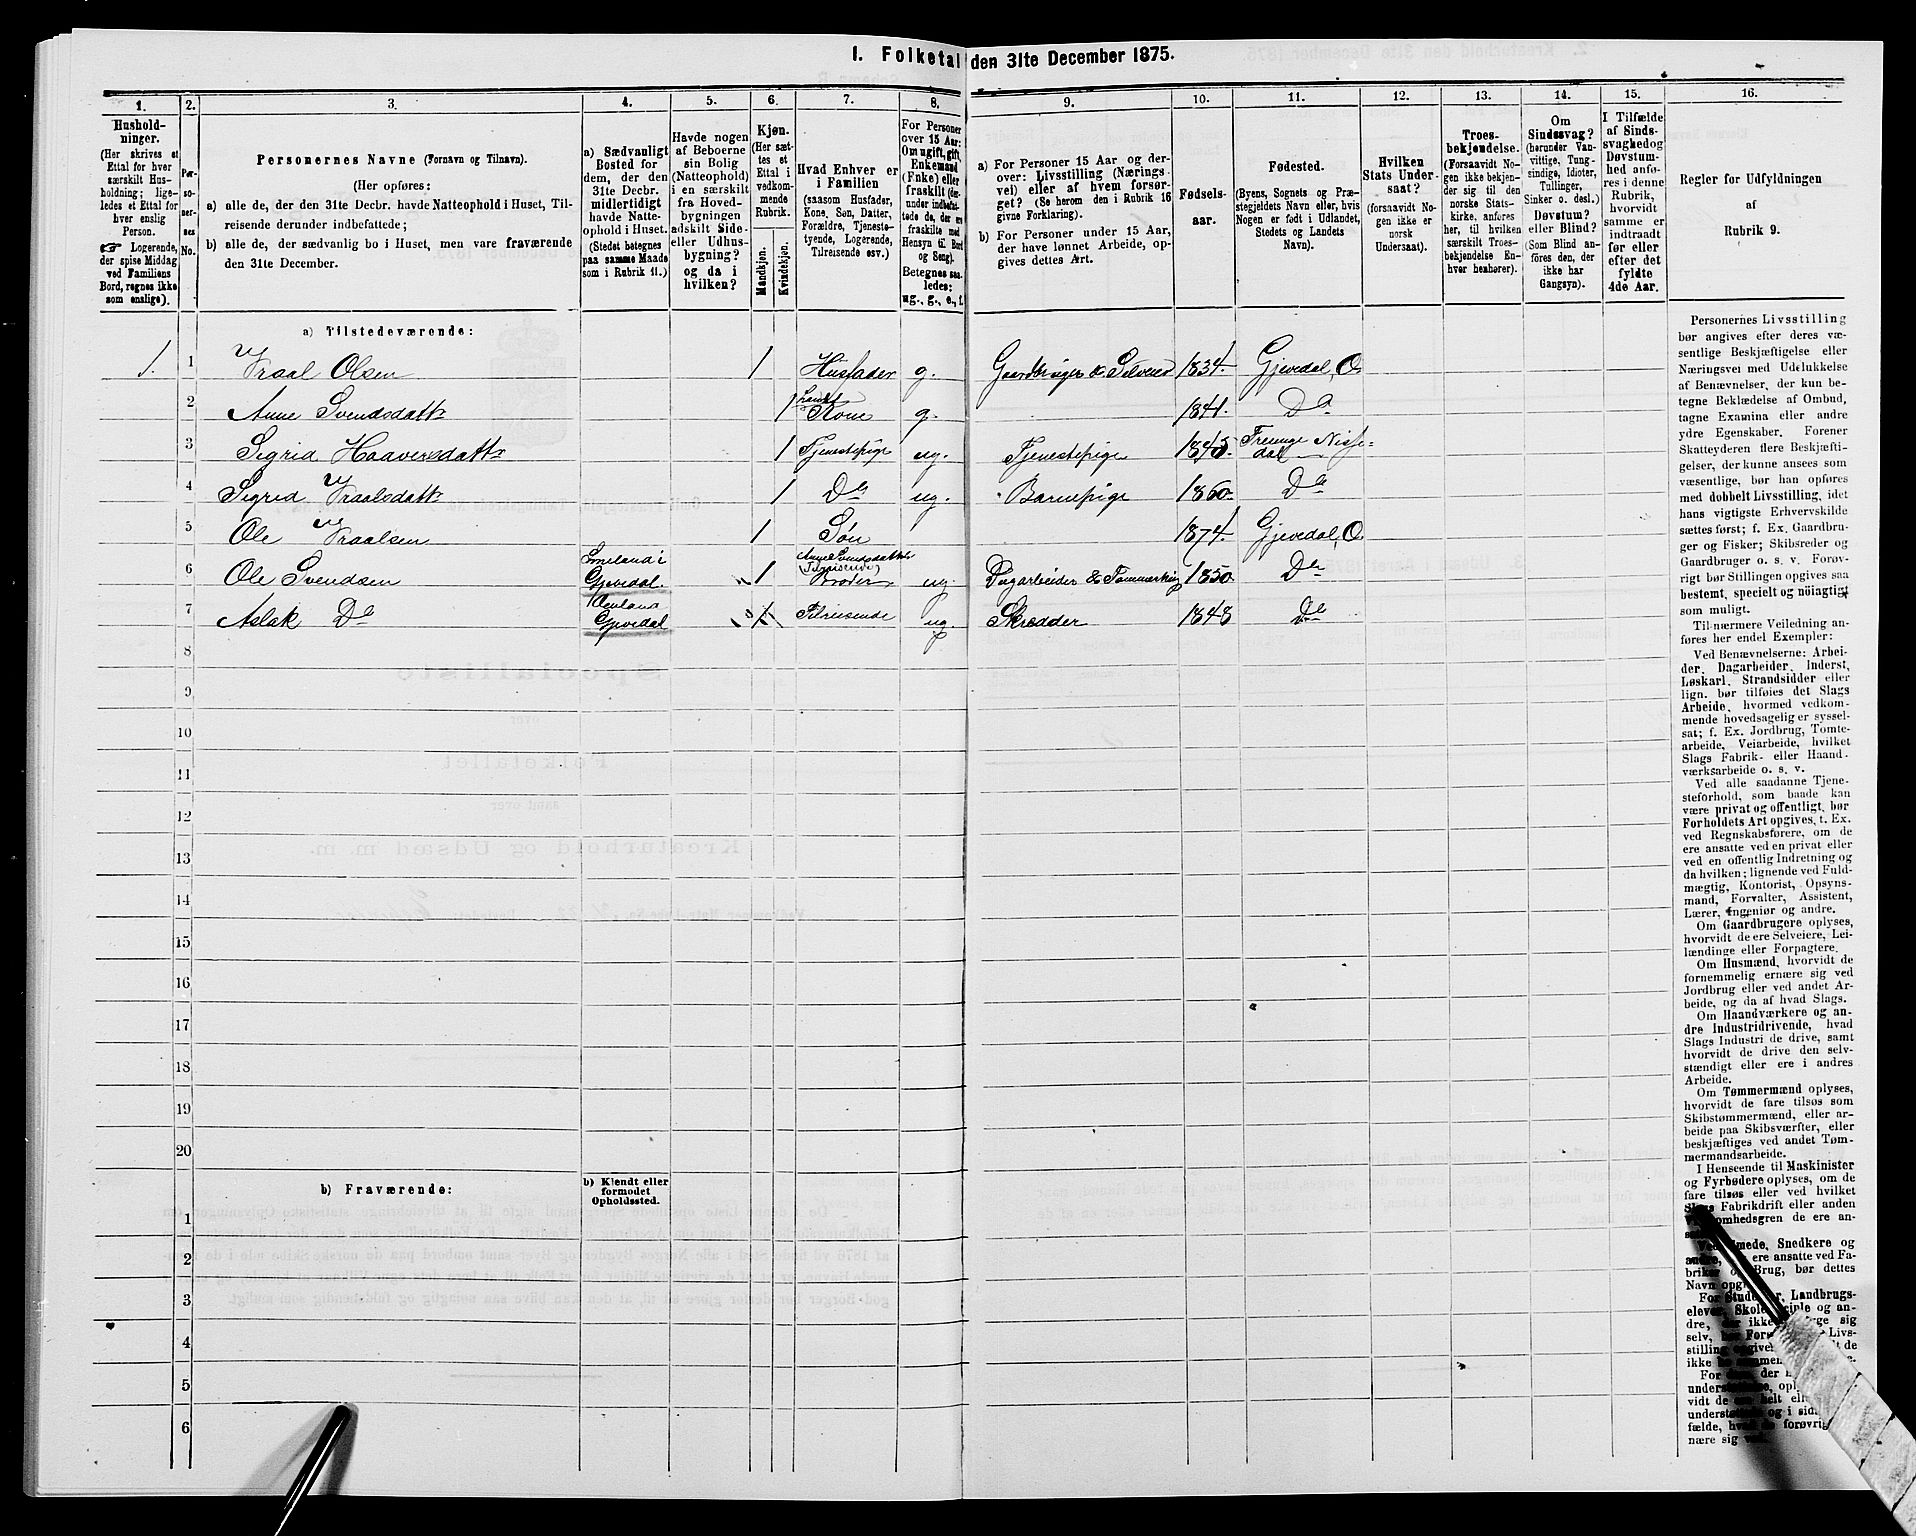 I. Folketal den 31te December 1875.
1. 2. 3. 4. 5. 6. 7. 8. 9. 10. 11. 12. 13. 14. 15. 16.
Hushold-
ninger.
(Her skrives et
Ettal for hver
særskilt Hus-
holdning; lige-
ledes et Ettal for
hver enslig
Person.
☞ Logerende,
der spise Middag
ved Familiens
Bord, regnes ikke
som enslige).
Per-
so-
ner-
nes
No.
Personernes Navne (Fornavn og Tilnavn).
(Her opføres:
a) alle de, der den 31te Decbr. havde Natteophold i Huset, Til-
reisende derunder indbefattede;
b) alle de, der sædvanlig bo i Huset, men vare fraværende
den 31te December.
a) Sædvanligt
Bosted for
dem, der den
31te Decbr.
midlertidigt
havde Natte-
ophold i Huset.
(Stedet betegnes
paa samme Maade
som i Rubrik 11.)
Havde nogen
af Beboerne
sin Bolig
(Natteophold)
i en særskilt
fra Hoved-
bygningen
adskilt Side-
eller Udhus-
bygning?
og da i
hvilken?
Kjøn.
(Her sæt-
tes et
Ettal i
vedkom-
mende
Rubrik.
Mandkjøn.
Kvindekjøn.
Hvad Enhver er
i Familien
(saasom Husfader,
Kone, Søn, Datter,
Forældre, Tjeneste-
tyende, Logerende,
Tilreisende osv.)
For Personer
over 15 Aar:
Om ugift, gift,
Enkemand
(Enke) eller
fraskilt (der-
under indbefat-
tede de, der ere
fraskilte med
Hensyn til Bord
og Seng).
Betegnes saa-
ledes:
ug., g., e., f.
a) For Personer 15 Aar og der-
over: Livsstilling (Nærings-
vei) eller af hvem forsør-
get? (Se herom den i Rubrik 16
givne Forklaring).
b) For Personer under 15 Aar,
der have lønnet Arbeide, op-
gives dettes Art.
Fødsels-
aar.
Fødested.
(Byens, Sognets og Præ-
stegjeldets Navn eller, hvis
Nogen er født i Udlandet,
Stedets og Landets
Navn).
Hvilken
Stats Under-
saat?
(forsaavidt No-
gen ikke er
norsk
Undersaat).
Troes-
bekjendelse.
(Forsaavidt No-
gen ikke bekjen-
der sig til den
norske Stats-
kirke, anføres
her, til hvilken
særskilt Troes-
bekjendelse En-
hver henhører).
Om
Sindssvag?
(herunder Van-
vittige, Tung-
sindige, Idioter,
Tullinger,
Sinker o. desl.)
Døvstum?
eller Blind?
(Som Blind an-
føres den, der
ikke har
Gangsyn).
I Tilfælde
af Sinds-
svaghed og
Døvstum-
hed anfø-
res i denne
Rubrik,
hvorvidt
samme er
indtraadt
før eller
efter det
fyldte
4de Aar.
Regler for Udfyldningen
af
Rubrik 9.
a) Tilstedeværende:
1. 1 Vraal Olsen 1 Husfader g. Gaardbruger & Selveier 1834. Gjevedal, O
2 Anne Svendsdatt 1 hans Kone g. 1841. Do
3 Sigrid Haaversdattr 1 Tjenestepige ug. Tjenestepige Treunge Nisse-
dal
4 Sigrid Vraalsdatt 1 Do ug. Barnepige 1860. Do
5 Ole Vraalsen 1 Søn 1874. Gjevedal, O
6 Ole Svendsen i Gjevedal. 1 Anne Svendsdatter (Tilreisende) Broder ug. Dagarbeider & 1850 Do
7 Aslak Do Gjevedal 1 Tilreisende ug. Skrædder 1848 Do
8
9
10
11
12
13
14
15
16
17
18
19
20
b) Fraværende:
b) Kjendt eller
formodet
Opholdssted.
1
2
3
4
5
6
Personernes Livsstilling
bør angives efter deres væ-
sentlige Beskjæftigelse eller
Næringsvei med Udelukkelse
af Benævnelser, der kun be-
tegne Beklædelse af Ombud,
tagne Examina eller andre
ydre Egenskaber. Forener
Skatteyderen flere Beskjæfti-
gelser, der kunne ansees som
væsentlige, bør han opføres
med dobbelt Livsstilling, idet
hans vigtigste Erhvervskilde
sættes først; f. Ex. Gaardbru-
ger og Fisker; Skibsreder og
Gaardbruger o. s. v. Forøv-
rigt bør Stillingen opgives saa
bestemt, specielt og nöiagtigt
som muligt.
Til nærmere Veiledning an-
føres her endel Exempler:
Ved Benævnelserne: Arbei-
der, Dagarbeider, Inderst,
Løskarl, Strandsidder eller
lign. bør tilføies det Slags
Arbeide, hvormed vedkom-
mende hovedsagelig er syssel-
sat; f. Ex. Jordbrug, Tomte-
arbeide, Veiarbeide, hvilket
Slags Fabrik- eller Haand-
værksarbeide o. s. v.
Ved alle saadanne Tjene-
steforhold, som baade kan
være privat og offentligt, bør
Forholdets Art opgives, t. Ex.
ved Regnskabsførere, om de
ere ansatte ved en privat eller
ved en offentlig Indretning og
da hvilken; lignende ved Fuld-
mægtig, Kontorist, Opsyns-
mand, Forvalter, Assistent,
Lærer, Ingeniør og andre.
Om Gaardbrugere oplyses,
hvorvidt de ere Selveiere, Lei-
lændinge eller Forpagtere.
Om Husmænd, hvorvidt de
fornemmelig ernære sig ved
Jordbrug eller ved andet Ar-
beide, og da af hvad Slags.
Om Haandværkere og an-
dre Industridrivende, hvad
Slags Industri de drive, samt
hvorvidt de drive den selv-
stændigt eller ere i andres
Arbeide.
Om Tømmermænd oplyses,
hvorvidt de fare tilsøs som
Skibstømmermænd, eller ar-
beide paa Skibsværfter, eller
beskjæftiges ved andet Tøm-
mermandsarbeide.
I Henseende til Maskinister
og Fyrbødere oplyses, om de
fare tilsøs eller ved hvilket
Slags Fabrikdrift eller anden
de ere an-
Snedkere og
ere ansatte ved Fa-
Brug, bør dettes
Navn
Landbrugs-
og an-
dre, ikke sig
selv, Livs-
stilling de
ikke
For der
vidt de helt
og i
forøvrigt
nære sig